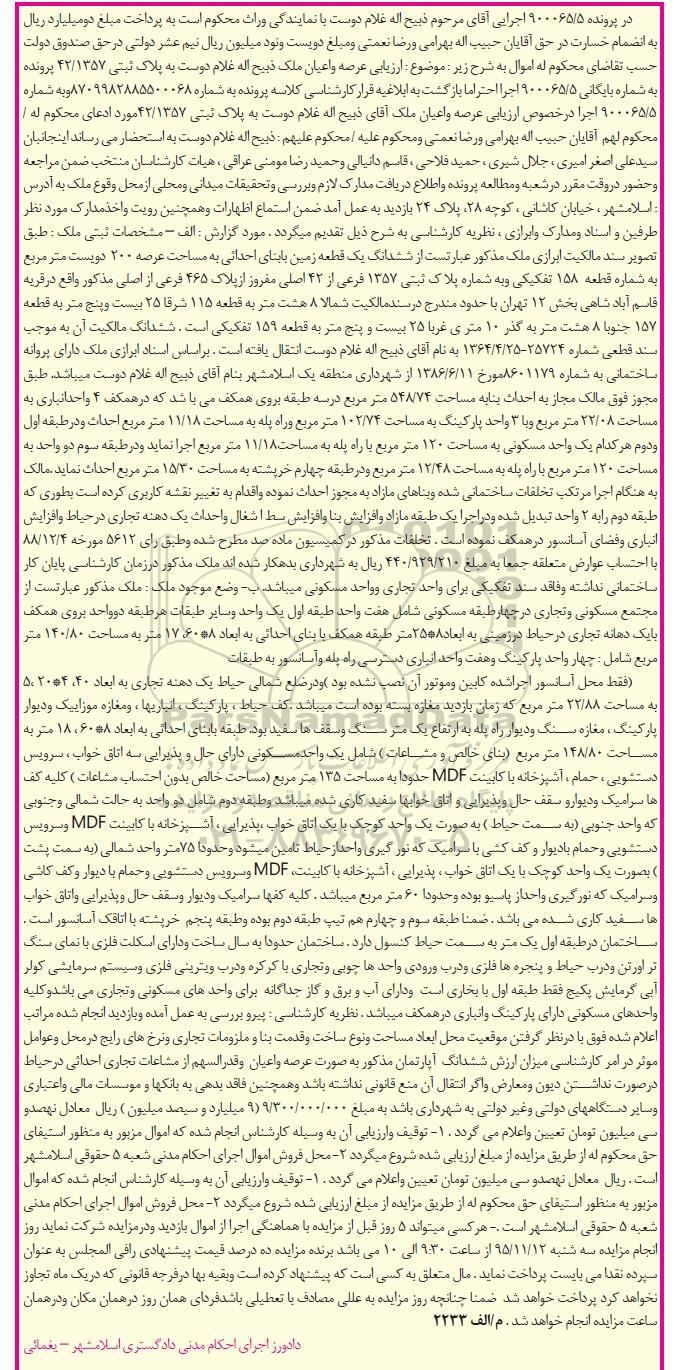 در پرونده ۹۰۰۰۶۵/۵ اجرایی آقای مرحوم ذبیح اله غلام دوست با نمایندگی وراث محکوم است به پرداخت مبلغ دومیلیارد ریال
به انضمام خسارت در حق آقایان حبیب اله بهرامی ورضا نعمتی ومبلغ دویست ونود میلیون ریال نیم عشر دولتی درحق صندوق دولت
حسب تقاضای محکوم له اموال به شرح زیر : موضوع : ارزیابی عرصه واعیان ملک ذبیح اله غلام دوست به پلاک ثبتی ۴۲/۱۳۵۷ پرونده
به شماره بایگانی ۹۰۰۰۶۵/۵ اجرا احتراما بازگشت به ابلاغیه قرارکارشناسی کلاسه پرونده به شماره ۸۷۰۹۹۸۲۸۸۵۵۰۰۰۶۸وبه شماره
۹۰۰۰۶۵/۵ اجرا درخصوص ارزیابی عرصه واعیان ملک آقای ذبیح اله غلام دوست به پلاک ثبتی ۴۲/۱۳۵۷مورد ادعای محکوم له /
محکوم لهم آقایان حبیب اله بهرامی ورضا نعمتی ومحکوم علیه / محکوم علیهم : ذبیح اله غلام دوست به استحضار می رساند اینجانبان
سیدعلی اصغر امیری ، جلال شیری ، حمید فلاحی ، قاسم دانیالی وحمید رضا مومنی عراقی ، هیات کارشناسان منتخب ضمن مراجعه
وحضور دروقت مقرر درشعبه ومطالعه پرونده واطلاع دریافت مدارک لازم وبررسی وتحقیقات میدانی ومحلی ازمحل وقوع ملک به آدرس
: اسلامشهر ، خیابان کاشانی ، کوچه ۲۸، پلاک ۲۴ بازدید به عمل آمد ضمن استماع اظهارات وهمچنین رویت واخذمدارک مورد نظر
طرفین و اسناد ومدارک وابرازی ، نظریه کارشناسی به شرح ذیل تقدیم میگردد . مورد گزارش : الف – مشخصات ثبتی ملک : طبق
تصویر سند مالکیت ابرازی ملک مذکور عبارتست از ششدانگ یک قطعه زمین بابنای احداثی به مساحت عرصه ۲۰۰ دویست متر مربع
به شماره قطعه ۱۵۸ تفکیکی وبه شماره پلا ک ثبتی ۱۳۵۷ فرعی از ۴۲ اصلی مفروز ازپلاک ۴۶۵ فرعی از اصلی مذکور واقع درقریه
قاسم آباد شاهی بخش ۱۲ تهران با حدود مندرج درسندمالکیت شمالا ۸ هشت متر به قطعه ۱۱۵ شرقا ۲۵ بیست وپنج متر به قطعه
۱۵۷ جنوبا ۸ هشت متر به گذر ۱۰ متر ی غربا ۲۵ بیست و پنج متر به قطعه ۱۵۹ تفکیکی است . ششدانگ مالکیت آن به موجب
سند قطعی شماره ۲۵۷۲۴-۱۳۶۴/۴/۲۵ به نام آقای ذبیح اله غلام دوست انتقال یافته است . براساس اسناد ابرازی ملک دارای پروانه
ساختمانی به شماره ۸۶۰۱۱۷۹مورخ ۱۳۸۶/۶/۱۱ از شهرداری منطقه یک اسلامشهر بنام آقای ذبیح اله غلام دوست میباشد. طبق
مجوز فوق مالک مجاز به احداث بنابه مساحت ۵۴۸/۷۴ متر مربع درسه طبقه بروی همکف می با شد که درهمکف ۴ واحدانباری به
مساحت ۲۲/۰۸ متر مربع وبا ۳ واحد پارکینگ به مساحت ۱۰۲/۷۴ متر مربع وراه پله به مساحت ۱۱/۱۸ متر مربع احداث ودرطبقه اول
ودوم هرکدام یک واحد مسکونی به مساحت ۱۲۰ متر مربع با راه پله به مساحت۱۱/۱۸ متر مربع اجرا نماید ودرطبقه سوم دو واحد به
مساحت ۱۲۰ متر مربع با راه پله به مساحت ۱۲/۴۸ متر مربع ودرطبقه چهارم خرپشته به مساحت ۱۵/۳۰ متر مربع احداث نماید .مالک
به هنگام اجرا مرتکب تخلفات ساختمانی شده وبناهای مازاد به مجوز احداث نموده واقدام به تغییر نقشه کاربری کرده است بطوری که
طبقه دوم رابه ۲ واحد تبدیل شده ودراجرا یک طبقه مازاد وافزایش بنا وافزایش سط ا شغال واحداث یک دهنه تجاری درحیاط وافزایش
انباری وفضای آسانسور درهمکف نموده است . تخلفات مذکور درکمیسیون ماده صد مطرح شده وطبق رای ۵۶۱۲ مورخه ۸۸/۱۲/۴
با احتساب عوارض متعلقه جمعا به مبلغ ۴۴۰/۹۲۹/۲۱۰ ریال به شهرداری بدهکار شده اند ملک مذکور درزمان کارشناسی پایان کار
ساختمانی نداشته وفاقد سند تفکیکی برای واحد تجاری وواحد مسکونی میباشد. ب- وضع موجود ملک : ملک مذکور عبارتست از
مجتمع مسکونی وتجاری درچهارطبقه مسکونی شامل هفت واحد طبقه اول یک واحد وسایر طبقات هرطبقه دوواحد بروی همکف
بایک دهانه تجاری درحیاط درزمینی به ابعاد۸*۲۵متر طبقه همکف با بنای احداثی به ابعاد ۸*۱۷،۶۰ متر به مساحت ۱۴۰/۸۰ متر
مربع شامل : چهار واحد پارکینگ وهفت واحد انباری دسترسی راه پله وآسانسور به طبقات
(فقط محل آسانسور اجراشده کابین وموتور آن نصب نشده بود )ودرضلع شمالی حیاط یک دهنه تجاری به ابعاد ۴،۴۰*۵،۲۰
به مساحت ۲۲/۸۸ متر مربع که زمان بازدید مغازه بسته بوده است میباشد .کف حیاط ، پارکینگ ، انباریها ، ومغازه موزاییک ودیوار
پارکینگ ، مغازه سنگ ودیوار راه پله به ارتفاع یک متر سنگ وسقف ها سفید بود. طبقه بابنای احداثی به ابعاد ۸*۱۸،۶۰ متر به
مساحت ۱۴۸/۸۰ متر مربع (بنای خالص و مشاعات ) شامل یک واحدمسکونی دارای حال و پذیرایی سه اتاق خواب ، سرویس
دستشویی ، حمام ، آشپزخانه با کابینت MDF حدودا به مساحت ۱۳۵ متر مربع (مساحت خالص بدون احتساب مشاعات ) کلیه کف
ها سرامیک ودیوارو سقف حال وپذیرایی و اتاق خوابها سفید کاری شده میباشد وطبقه دوم شامل دو واحد به حالت شمالی وجنوبی
که واحد جنوبی (به سمت حیاط ) به صورت یک واحد کوچک با یک اتاق خواب ،پذیرایی ، آشپزخانه با کابینت MDF وسرویس
دستشویی وحمام بادیوار و کف کشی با سرامیک که نور گیری واحدازحیاط تامین میشود وحدودا ۷۵متر واحد شمالی (به سمت پشت
) بصورت یک واحد کوچک با یک اتاق خواب ، پذیرایی ، آشپزخانه با کابینت، MDF وسرویس دستشویی وحمام با دیوار وکف کاشی
وسرامیک که نورگیری واحداز پاسیو بوده وحدودا ۶۰ متر مربع میباشد . کلیه کفها سرامیک ودیوار وسقف حال وپذیرایی واتاق خواب
ها سفید کاری شده می باشد . ضمنا طبقه سوم و چهارم هم تیپ طبقه دوم بوده وطبقه پنجم خرپشته با اتاقک آسانسور است .
ساختمان درطبقه اول یک متر به سمت حیاط کنسول دارد . ساختمان حدودا به سال ساخت ودارای اسکلت فلزی با نمای سنگ
تر اورتن ودرب حیاط و پنجره ها فلزی ودرب ورودی واحد ها چوبی وتجاری با کرکره ودرب ویترینی فلزی وسیستم سرمایشی کولر
آبی گرمایش پکیج فقط طبقه اول با بخاری است ودارای آب و برق و گاز جداگانه برای واحد های مسکونی وتجاری می باشدوکلیه
واحدهای مسکونی دارای پارکینگ وانباری درهمکف میباشد . نظریه کارشناسی : پیرو بررسی به عمل آمده وبازدید انجام شده مراتب
اعلام شده فوق با درنظر گرفتن موقعیت محل ابعاد مساحت ونوع ساخت وقدمت بنا و ملزومات تجاری ونرخ های رایج درمحل وعوامل
موثر در امر کارشناسی میزان ارزش ششدانگ آپارتمان مذکور به صورت عرصه واعیان وقدرالسهم از مشاعات تجاری احداثی درحیاط
درصورت نداشتن دیون ومعارض واگر انتقال آن منع قانونی نداشته باشد وهمچنین فاقد بدهی به بانکها و موسسات مالی واعتباری
وسایر دستگاههای دولتی وغیر دولتی به شهرداری باشد به مبلغ ۹/۳۰۰/۰۰۰/۰۰۰ (۹ میلیارد و سیصد میلیون ) ریال معادل نهصدو
سی میلیون تومان تعیین واعلام می گردد . ۱- توقیف وارزیابی آن به وسیله کارشناس انجام شده که اموال مزبور به منظور استیفای
حق محکوم له از طریق مزایده از مبلغ ارزیابی شده شروع میگردد ۲-محل فروش اموال اجرای احکام مدنی شعبه ۵ حقوقی اسلامشهر
است . ریال معادل نهصدو سی میلیون تومان تعیین واعلام می گردد . ۱- توقیف وارزیابی آن به وسیله کارشناس انجام شده که اموال
مزبور به منظور استیفای حق محکوم له از طریق مزایده از مبلغ ارزیابی شده شروع میگردد ۲- محل فروش اموال اجرای احکام مدنی
شعبه ۵ حقوقی اسلامشهر است .- هرکسی میتواند ۵ روز قبل از مزایده با هماهنگی اجرا از اموال بازدید ودرمزایده شرکت نماید روز
انجام مزایده سه شنبه ۹۵/۱۱/۱۲ از ساعت ۹:۳۰ الی ۱۰ می باشد برنده مزایده ده درصد قیمت پیشنهادی رافی المجلس به عنوان
سپرده نقدا می بایست پرداخت نماید . مال متعلق به کسی است که پیشنهاد کرده است وبقیه بها درفرجه قانونی که دریک ماه تجاوز
نخواهد کرد پرداخت خواهد شد ضمنا چنانچه روز مزایده به عللی مصادف با تعطیلی باشدفردای همان روز درهمان مکان ودرهمان
ساعت مزایده انجام خواهد شد . م/الف ۲۲۳۳
دادورز اجرای احکام مدنی دادگستری اسلامشهر – یغمائی
ParsNamadData
۰۲۱-۸۸۳۴۹۶۷۰-۵